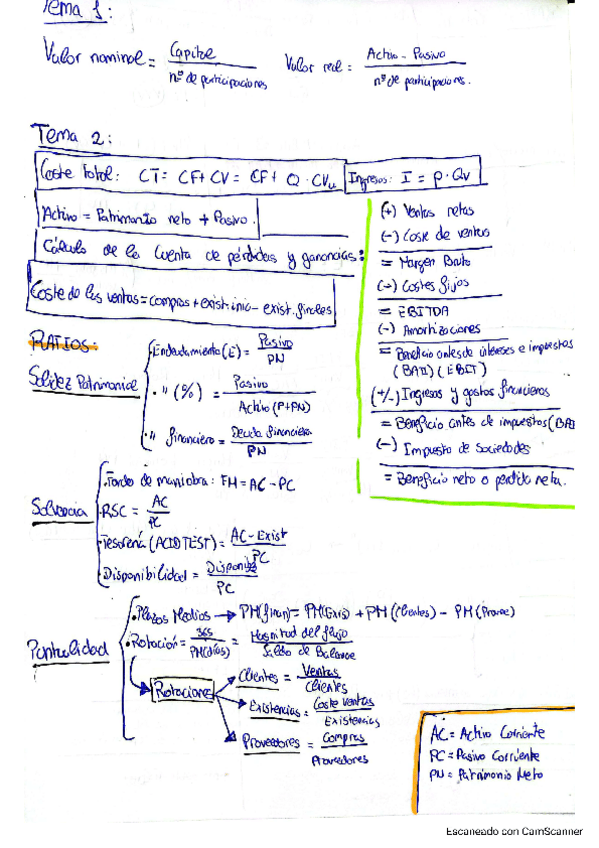 Tema 1:
Valor nominal = Capital / nº de participaciones
Valor real = Activo - Pasivo / nº de participaciones.
Tema 2:
Coste Total: CT = CF + CV = CF + Q · CVu
Ingresos: I = P · Qv
Activo = Patrimonio neto + Pasivo.
Cálculo de la cuenta de pérdidas y ganancias:
Coste de las ventas = compras + exist. inic - exist. finales
(+) Ventas netas
(-) Coste de ventas
= Margen Bruto
(-) Costes fijos
= EBITDA
(-) Amortizaciones
= Beneficio antes de intereses e impuestos
(BAII) (EBIT)
(+/-) Ingresos y gastos financieros
= Beneficio antes de impuestos (BAI
(-) Impuesto de Sociedades
= Beneficio neto o perdida neta.
RATIOS:
Solidez Patrimonial
Endeudamiento (E) = Pasivo / PN
" (%) = Pasivo / Activo (P+PN)
" financiero = Deuda financiera / PN
Solvencia
Fondo de maniobra: FM = AC - PC
RSC = AC / PC
Tesorería (ACID TEST) = AC - Exist / PC
Disponibilidad = Disponible / PC
Puntualidad
Plazos Medios → PM(finan) = PM(Exis) + PM(Clientes) - PM(Provee)
Rotación = 365 / PM(días) = Magnitud del flujo / Saldo de Balance
Rotaciones
Clientes = Ventas / Clientes
Existencias = Coste ventas / Existencias
Proveedores = Compras / Proveedores
AC = Activo Corriente
PC = Pasivo Corriente
PN = Patrimonio Neto
Escaneado con CamScanner